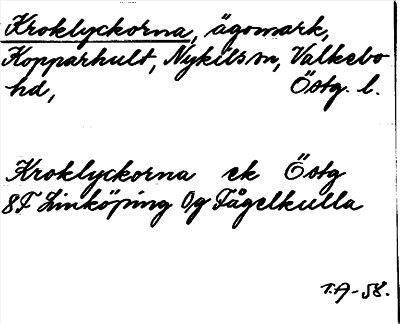 Kroklyckorna, ägomark,
Kopparhult, Nykils sn, Valkebo
hd, Östg. l.
Kroklyckorna ek Östg
8F Linköping 0g Fågelkulla
T.A-58.